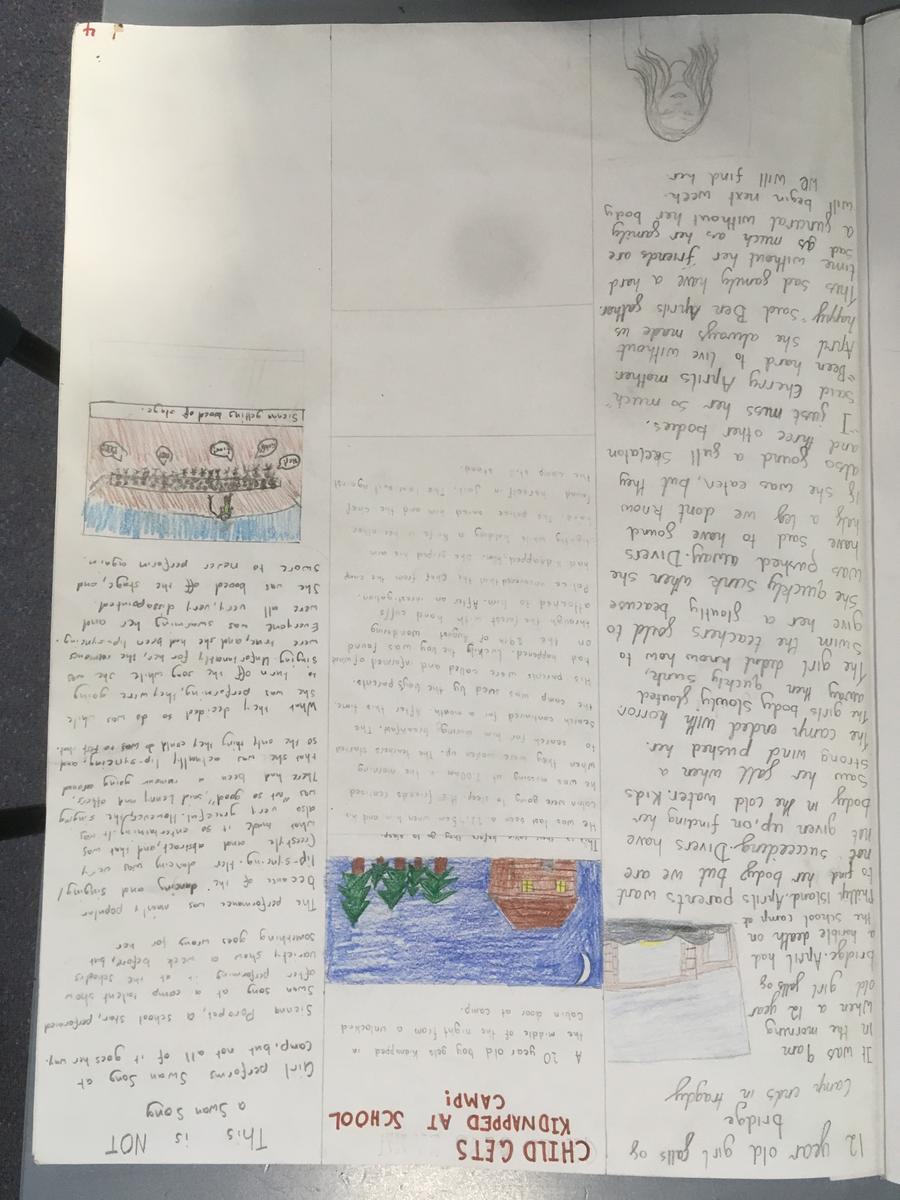 12 year old girl falls of
bridge
Camp ends in tragdy
It was 9am
in the morning
when a 12 year
old girl falls of
bridge. April had
a horrible death on
the school camp at
Phillip Island. Aprils parents want
to find her body but we are
not succeeding. Divers have
not given up, on finding her
body in the cold water. Kids
saw her fall when a
strong wind pushed her.
The camp ended with horror.
The girls body slowly floated
away then quickly sunk,
The girl didnt know how to
swim the teachers yeeld to
give her a floatty because
She quickly sunk when she
was pushed away. Divers
have said to have found
her leg we dont know
if she was eaten, but they
also found a full skeleton
and three other bodies.
"I just miss her so much"
said Cherry Aprils mother.
"Been hard to live without
April she always made us
happy" Said Ben Aprils father.
This sad family have a hard
time without her friends are
sad as much as her family
a funeral without her body
will begin next week.
we will find her
CHILD GETS
KIDNAPPED AT SCHOOL
CAMP!
A 10 year old boy gets kidnapped in
the middle of the night from a unlocked
Cabin door at camp.
This is their cabin before they go to sleep
He was last seen a 7:15 8pm when him and his
Cabin were going to sleep. His friends realised
he was missing at 7:00am in the morning
when they were woken up. The teachers started
to search for him during breakfast. The
Search continued for a month. After this time
the camp was sued by the boy's parents.
His parents were called and informed of what
had happened. Luckily the boy was found
on the 29th of August wandering
through the forest with hand cuffs
attached to him. After an investigation
Police uncovered that the Chef from the camp
had kidnapped him. She griped his arm
tightly while holding a knife in her other
hand. The police arived him and the Chef
found herself in jail. The last will against
the camp still stand.
This is NOT
a Swan Song
Girl performs Swan Song at
Camp, but not all of it goes her way.
Sienna Poropat, a school star, performed
Swan song at a camp talent show
after performing it at the schools
variety show a week before, but
something goes wrong for her
The performance was mainly popular
because of the dancing and singing/
lip-syncing. Her dancing was very
freestyle and abstract, and that was
what made it so entertaining. It was
also very graceful. However, the singing
was "not so good", said Lenny and others.
There had been a rumour going around
that she was actually lip-syncing, and
so the only thing they could do was to find out.
What they decided to do was while
she was performing, they were going
to turn off the song while she was
singing. Unfortunatly for her, the rumours
were true, and she had been lip-syncing.
Everyone was swarming her and
were all very, very dissapointed.
She was booed off the stage, and
swore to never perform again.
Sienna getting booed of stage.
4